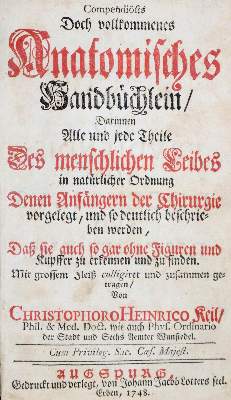 Compendiöses
Doch vollkommenes
Anatomisches
Handbüchlein/
Darinnen
Alle und jede Theile
Des menschlichen Leibes
in natürlicher Ordnung
Denen Anfängern der Chirurgie
vorgelegt, und so deutlich beschrie-
ben werden,
Daß sie auch so gar ohne Figuren und
Kupffer zu erkennen und zu finden.
Mit grossem Fleiß colligiret und zusammen ge-
tragen/
Von
CHRISTOPHORO HEINRICO Keil/
Phil. & Med. Doct. wie auch Phys. Ordinario
der Stadt und Sechs Aemter Wunsiedel.
Cum Privileg. Sac. Cæs. Majest.
AUGSPURG
Gedruckt und verlegt, von Johann Jacob Lotters seel.
Erben, 1748.